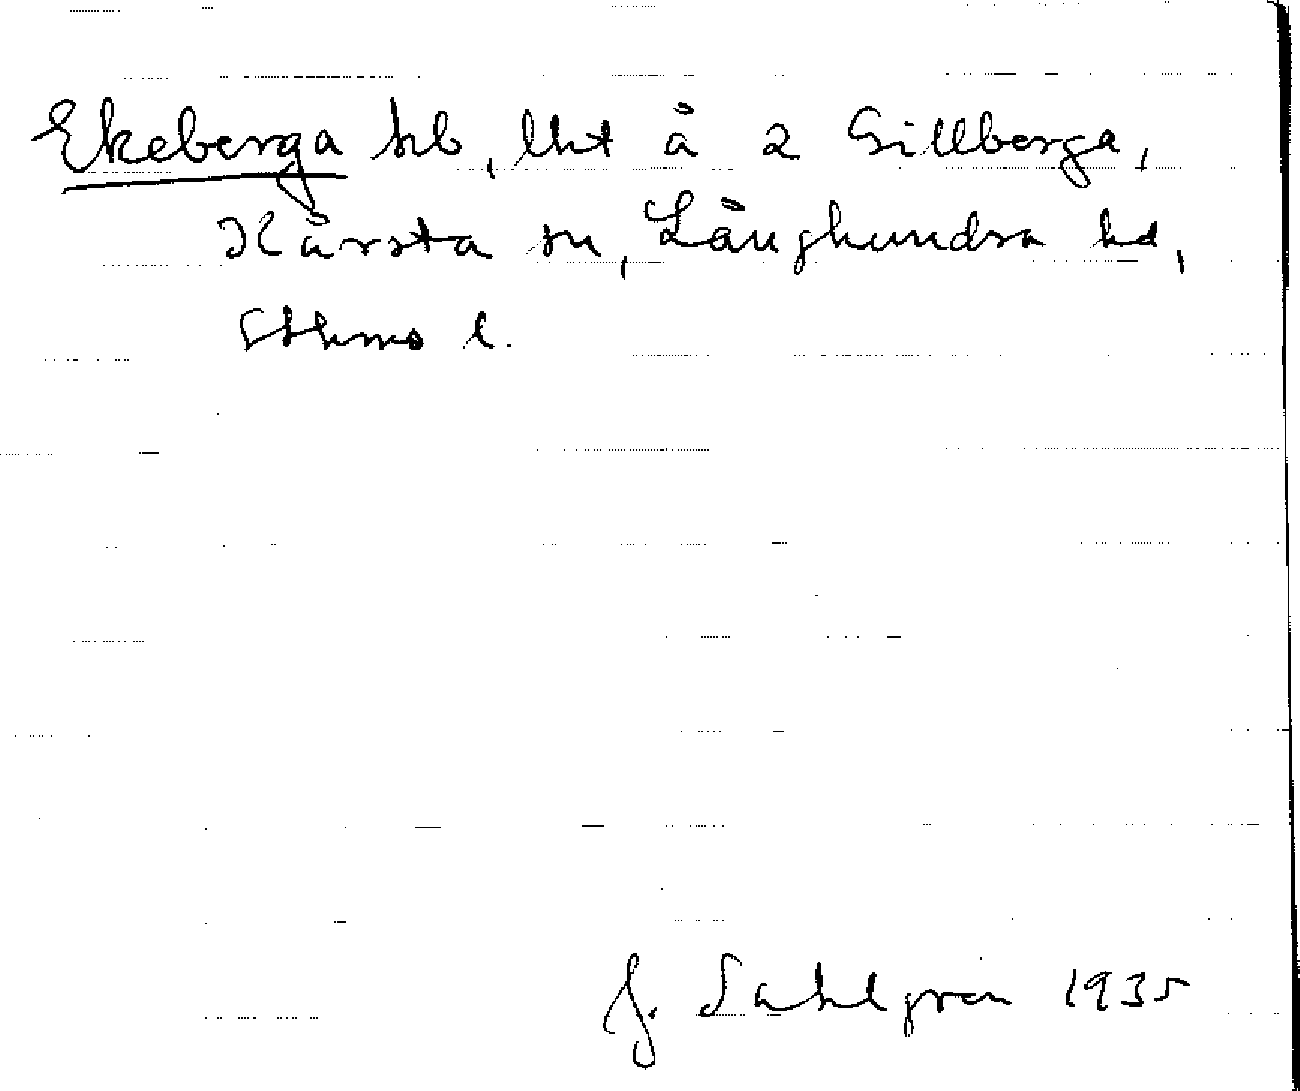 Ekeberga hb, lht å 2 Gillberga,
Kårsta sn, Långhundra hd,
Sthms l.
J. Sahlgren 1935